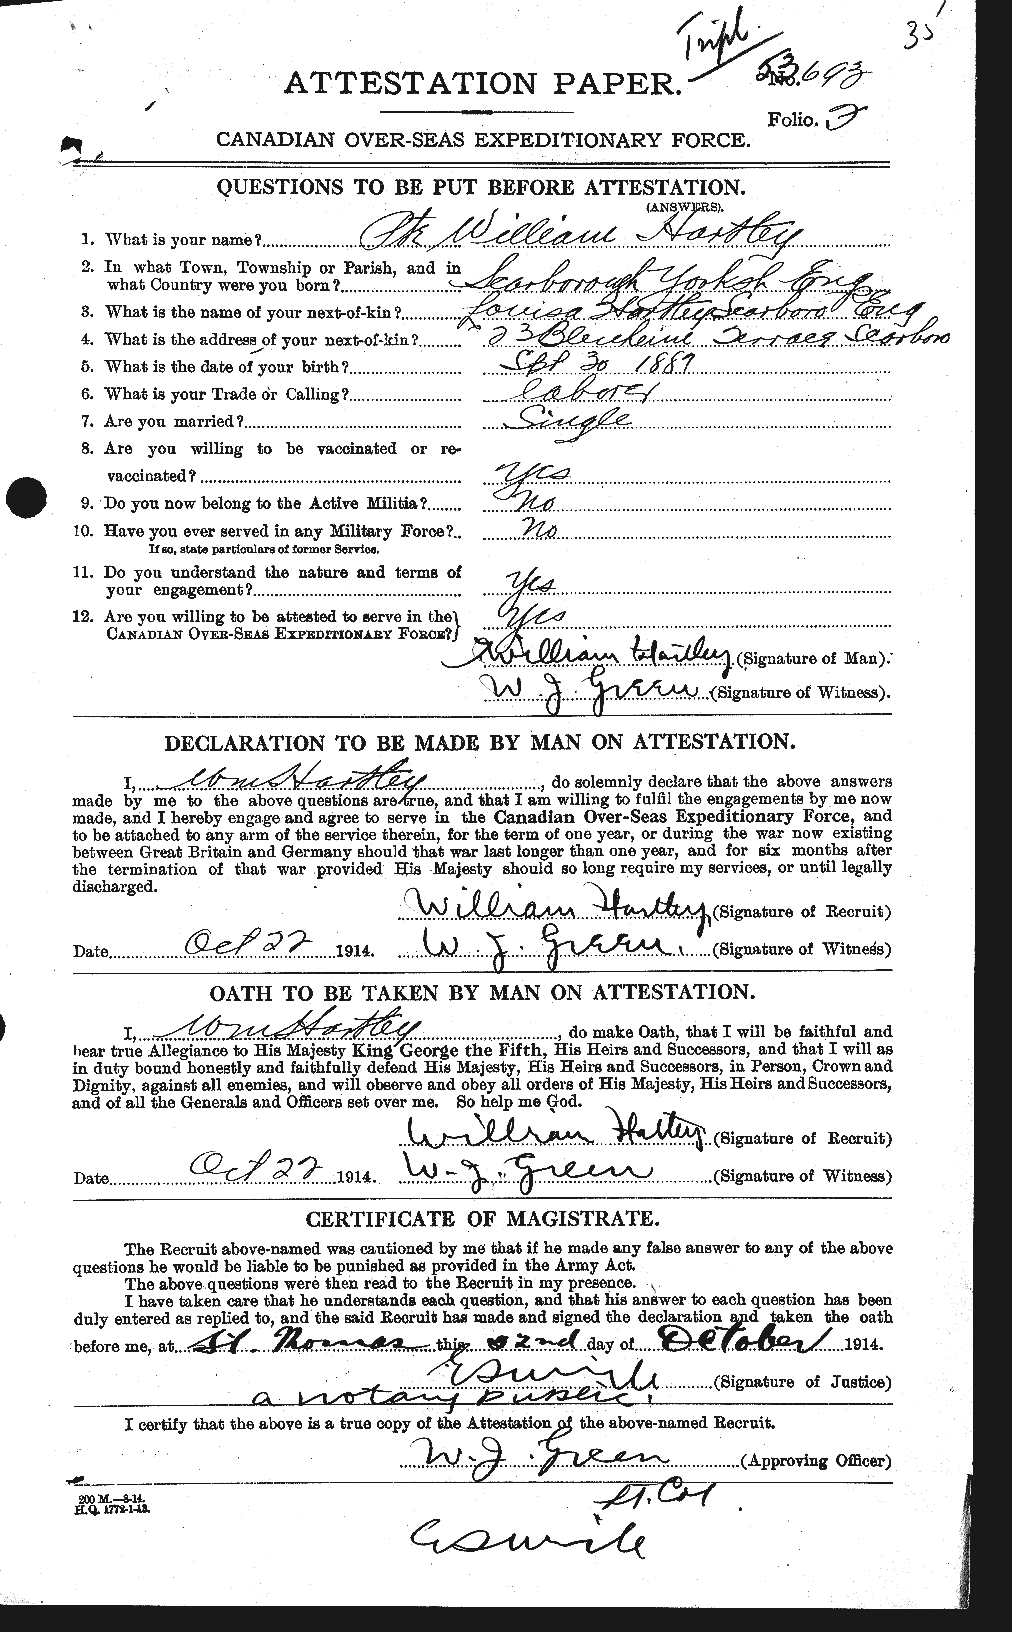 Tripl.
35
ATTESTATION PAPER.
No. 53693
Folio. 2
CANADIAN OVER-SEAS EXPEDITIONARY FORCE.
QUESTIONS TO BE PUT BEFORE ATTESTATION.
(ANSWERS).
1. What is your name? Pte William Hartley
2. In what Town, Township or Parish, and in
what Country were you born? Scarborough Yorksh Eng
3. What is the name of your next-of-kin? Louisa Hartley Scarboro Eng
4. What is the address of your next-of-kin? 23 Terrace Scarboro
5. What is the date of your birth? Spt 30 1889
6. What is your Trade or Calling? Laborer
7. Are you married? Single
8. Are you willing to be vaccinated or re-
vaccinated? Yes
9. Do you now belong to the Active Militia? No
10. Have you ever served in any Military Force?.. No
If so, state particulars of former Service.
11. Do you understand the nature and terms of
your engagement? Yes
12. Are you willing to be attested to serve in the
CANADIAN OVER-SEAS EXPEDITIONARY FORCE? Yes
William Hartley (Signature of Man).
W. J. Green (Signature of Witness).
DECLARATION TO BE MADE BY MAN ON ATTESTATION.
I, Wm Hartley, do solemnly declare that the above answers
made by me to the above questions are true, and that I am willing to fulfil the engagements by me now
made, and I hereby engage and agree to serve in the Canadian Over-Seas Expeditionary Force, and
to be attached to any arm of the service therein, for the term of one year, or during the war now existing
between Great Britain and Germany should that war last longer than one year, and for six months after
the termination of that war provided His Majesty should so long require my services, or until legally
discharged.
William Hartley (Signature of Recruit)
Date Oct 22 1914. W. J. Green. (Signature of Witness)
OATH TO BE TAKEN BY MAN ON ATTESTATION.
I, Wm Hartley, do make Oath, that I will be faithful and
bear true Allegiance to His Majesty King George the Fifth, His Heirs and Successors, and that I will as
in duty bound honestly and faithfully defend His Majesty, His Heirs and Successors, in Person, Crown and
Dignity, against all enemies, and will observe and obey all orders of His Majesty, His Heirs and Successors,
and of all the Generals and Officers set over me. So help me God.
William Hartley (Signature of Recruit)
Date Oct 22 1914. W. J. Green (Signature of Witness)
CERTIFICATE OF MAGISTRATE.
The Recruit above-named was cautioned by me that if he made any false answer to any of the above
questions he would be liable to be punished as provided in the Army Act.
The above questions were then read to the Recruit in my presence.
I have taken care that he understands each question, and that his answer to each question has been
duly entered as replied to, and the said Recruit has made and signed the declaration and taken the oath
before me, at St. Thomas this 22nd day of October 1914.
(Signature of Justice)
a notary public.
I certify that the above is a true copy of the Attestation of the above-named Recruit.
W. J. Green (Approving Officer)
Lt. Col.
200 M.—8-14.
H.Q. 1772-1-13.